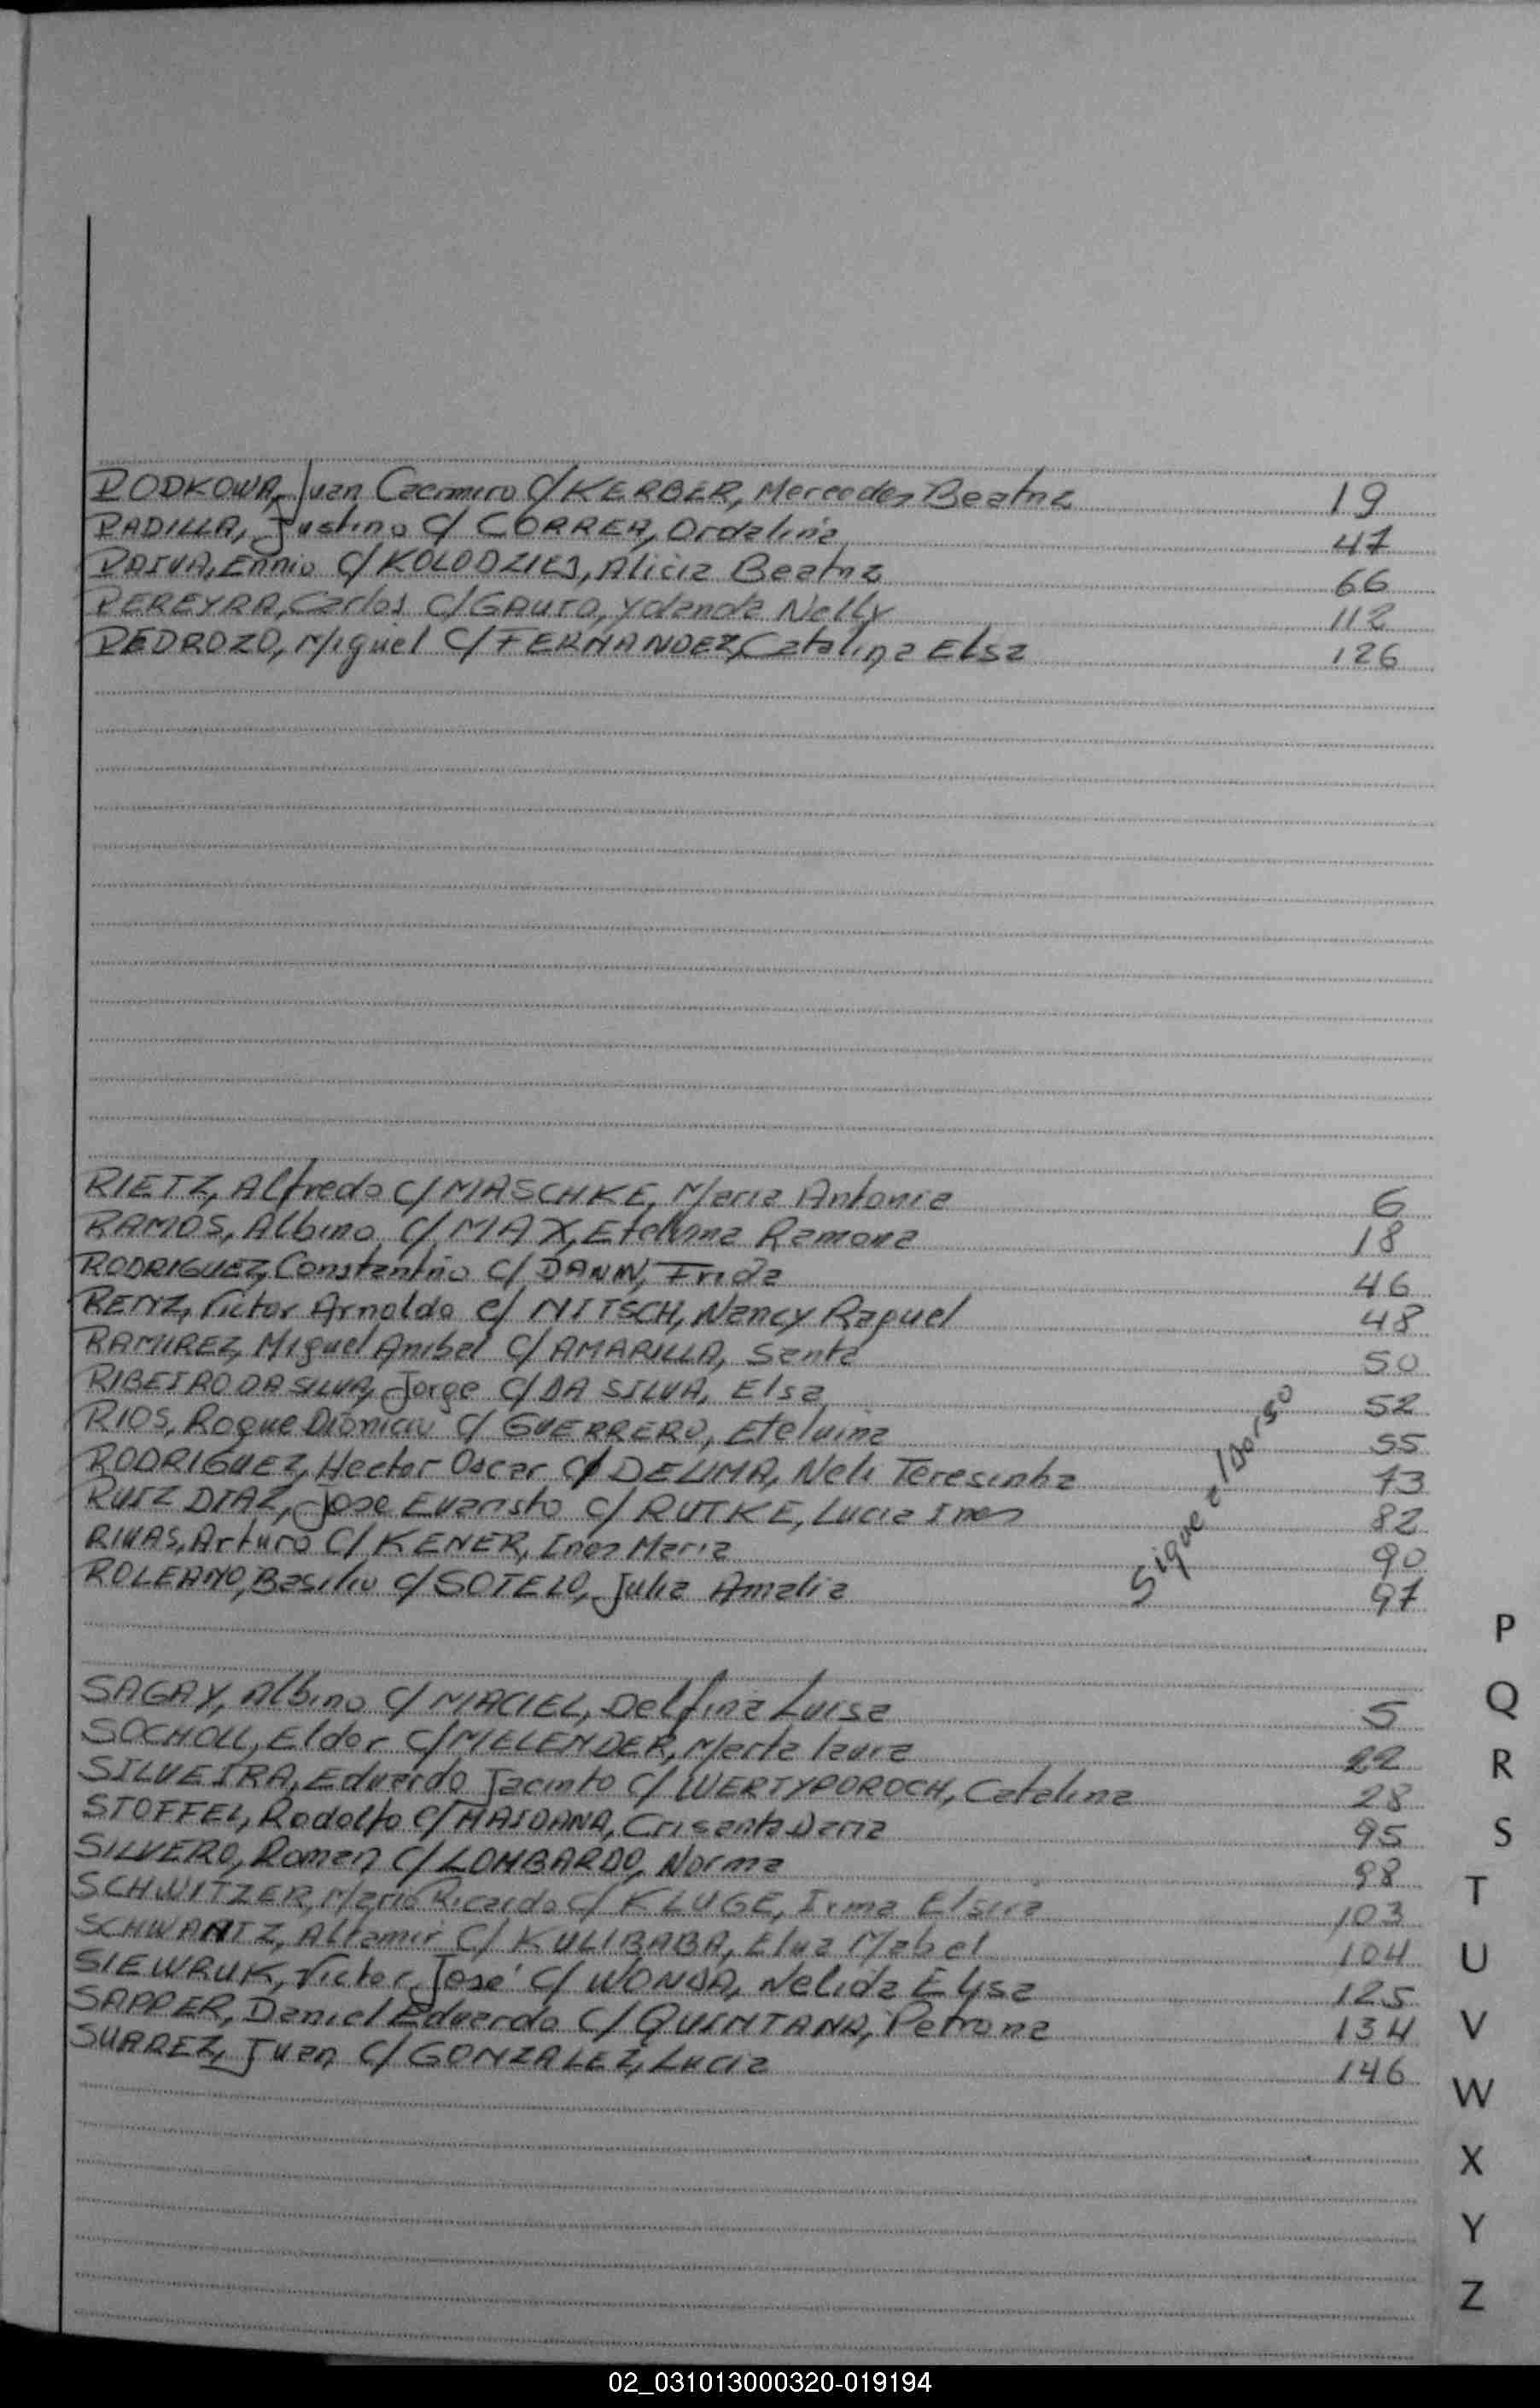 PODKOWA, Juan Cacimiro C/ KERBER, Mercedes Beatriz 19
PADILLA, Justino C/ CORREA, Ordalina 47
PAIVA, Ennio C/ KOLODZIEJ, Alicia Beatriz 66
PEREYRA, Carlos C/ GAUTO, Yolanda Nelly 112
PEDROZO, Miguel C/ FERNANDEZ, Catalina Elsa 126
RIETZ, Alfredo C/ MASCHKE, Maria Antonia 6
RAMOS, Albino C/ MAX, Etelvina Ramona 18
RODRIGUEZ, Constantino C/ DANN, Frida 46
RENZ, Victor Arnoldo C/ NITSCH, Nancy Raquel 48
RAMIREZ, Miguel Anibal C/ AMARILLA, Santa 50
RIBEIRO DA SILVA, Jorge C/ DA SILVA, Elsa 52
RIOS, Roque Dionicio C/ GUERRERO, Etelvina 55
RODRIGUEZ, Hector Oscar C/ DELIMA, Neli Teresinha 73
RUIZ DIAZ, Jose Evaristo C/ RUTKE, Lucia Ines 82
RIVAS, Arturo C/ KENER, Ines Maria 90
ROLEANO, Basilio C/ SOTELO, Julia Amalia 97
Sigue a/Dorso
SAGAY, Albino C/ MACIEL, Delfina Luisa 5
SOCHOLL, Eldor C/ MELENDER, Marta laura 22
SILVEIRA, Eduardo Jacinto C/ WERTYPOROCH, Catalina 28
STOFFEL, Rodolfo C/ MAIDANA, Crisanta Daria 95
SILVERO, Ramon C/ LOMBARDO, Norma 98
SCHWITZER, Mario Ricardo C/ KLUGE, Irma Elsira 103
SCHWANTZ, Altamir C/ KULIBABA, Elva Mabel 104
SIEWRUK, Victor José C/ WONSA, Nelida Elisa 125
SAPPER, Daniel Eduardo C/ QUINTANA, Petrona 134
SUAREZ, Juan C/ GONZALEZ, Lucia 146
P
Q
R
S
T
U
V
W
X
Y
Z
02_031013000320-019194